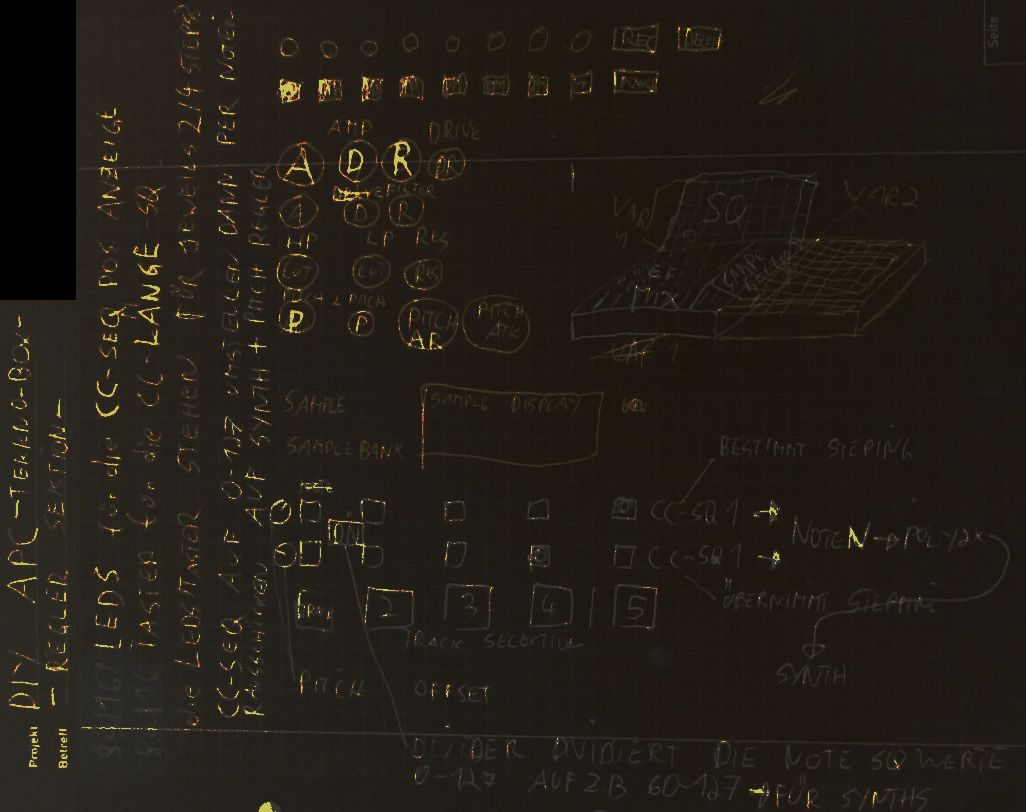 Seite
Projekt DIY APC-TEKNO-BOX-
Betreff — REGLER SEKTION —
8/16? LEDS für die CC-SEQ POS ANZEIGE
8/16 TASTER für die CC-LÄNGE-SQ
die LEDS/TASTER STEHEN FÜR JEWEILS 2/4 STEPS
CC-SEQ AUF 0-127 UMSTELLEN DANN PER NOTEN
AUF SYNTH + PITCH REGLER
REC
AMP DRIVE
A D R
FILTER
A D R
HP LP RES
CUT CUT
P P PITCH AR PITCH ATK
SQ
VAR 2
MIX
SAMPLE
SAMPLE DISPLAY
SAMPLE BANK
BESTIMMT STEPING
CC-SQ 1
NOTE N
CC-SQ 1
ÜBERNIMMT STEPPIN
2 3 4 5
TRACK SELECTION
SYNTH
PITCH OFFSET
DIVIDER DVIDIERT DIE NOTE SQ WERTE
0-127 AUF Z.B 60-127 FÜR SYNTHS